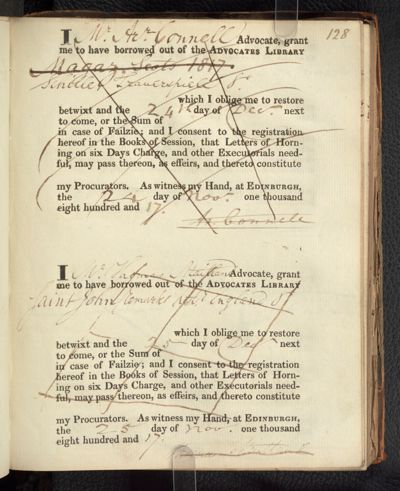 128
I Mr. Arr. Connell Advocate, grant
me to have borrowed out of the ADVOCATES LIBRARY
Magaz. Scots 1817
8o
which I oblige me to restore
betwixt and the 24 day of Decr. next
to come, or the Sum of
in case of Failzie; and I consent to the registration
hereof in the Books of Session, that Letters of Horn-
ing on six Days Charge, and other Executorials need-
ful, may pass thereon, as effeirs, and thereto constitute
my Procurators. As witness my Hand, at EDINBURGH,
the 24 day of Novr. one thousand
eight hundred and 17.
Ar Connell
I Mr. Thomas Maitland Advocate, grant
me to have borrowed out of the ADVOCATES LIBRARY
Saint John Remarks England 8o
which I oblige me to restore
betwixt and the 25 day of Decr. next
to come, or the Sum of
in case of Failzie; and I consent to the registration
hereof in the Books of Session, that Letters of Horn-
ing on six Days Charge, and other Executorials need-
ful, may pass thereon, as effeirs, and thereto constitute
my Procurators. As witness my Hand, at EDINBURGH,
the 25 day of Novr. one thousand
eight hundred and 17.